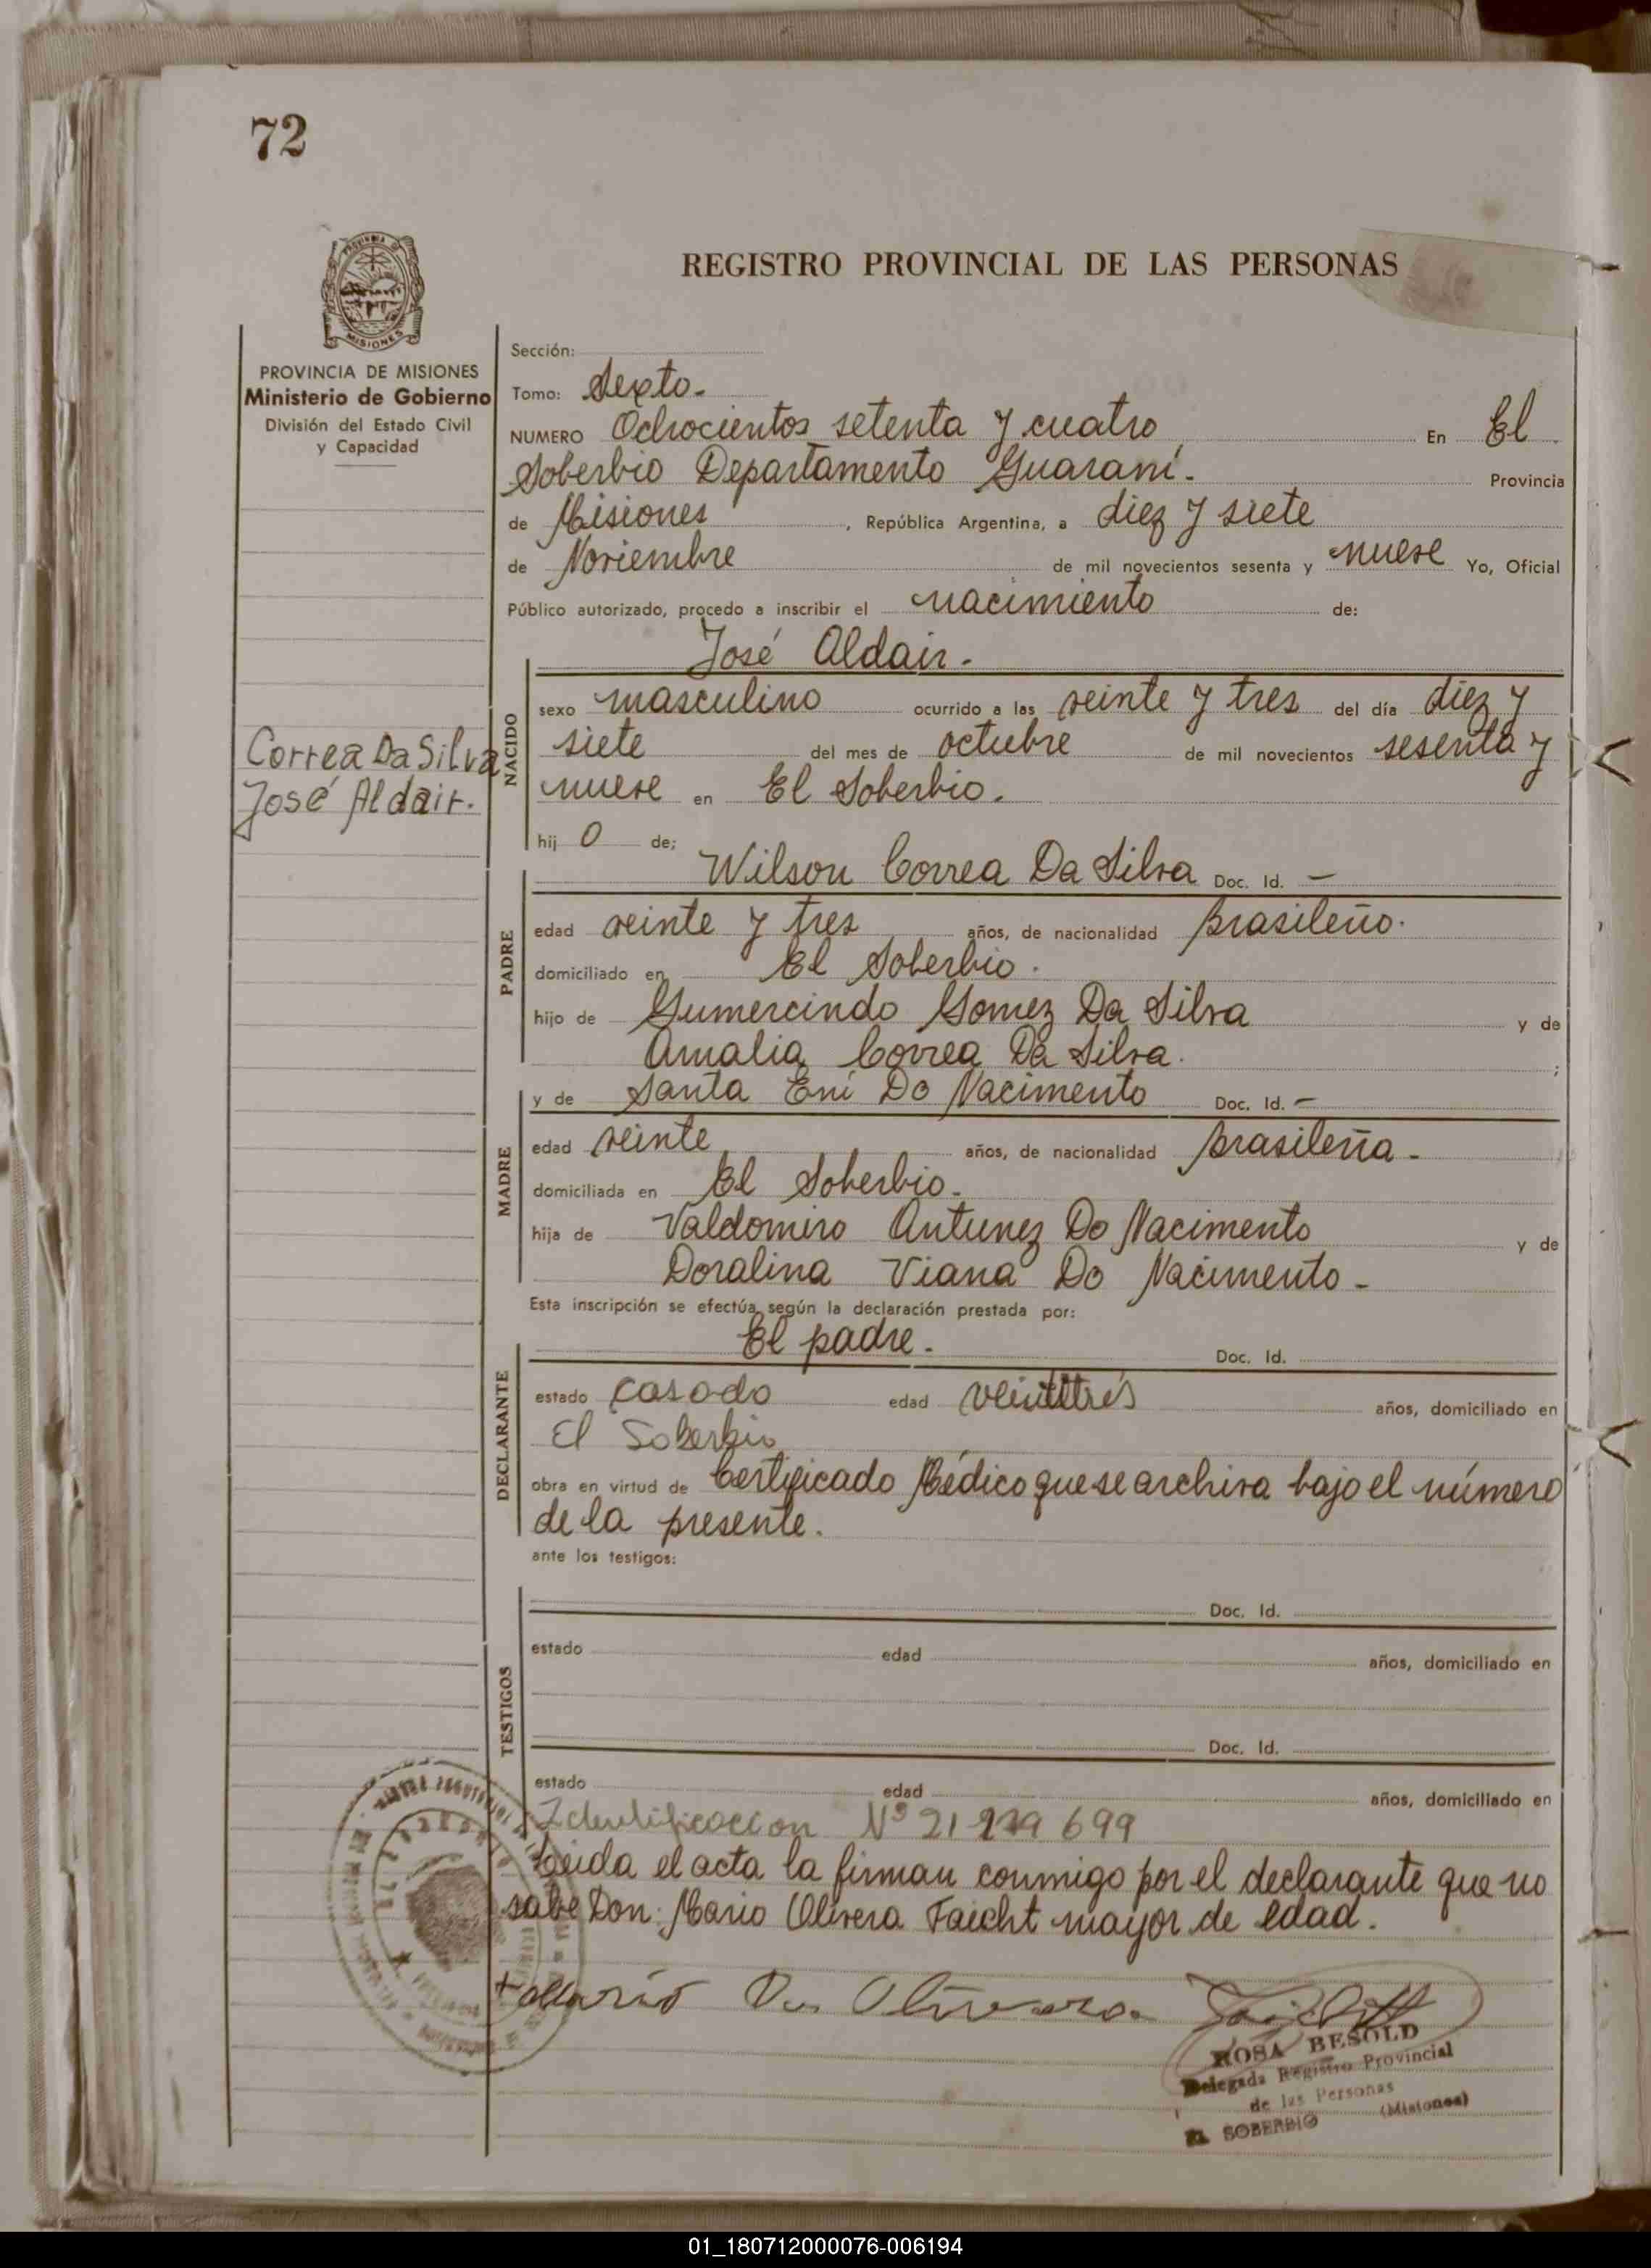 72
PROVINCIA DE
MISIONES
REGISTRO PROVINCIAL DE LAS PERSONAS
PROVINCIA DE MISIONES
Ministerio de Gobierno
División del Estado Civil
y Capacidad
Correa Da Silva
José Aldair.
Sección:
Tomo: Sexto.
NUMERO Ochocientos setenta y cuatro En El
Soberbio Departamento Guaraní. Provincia
de Misiones, República Argentina, a diez y siete
de Noviembre de mil novecientos sesenta y nueve Yo, Oficial
Público autorizado, procedo a inscribir el nacimiento de:
José Aldair.
NACIDO
sexo masculino ocurrido a las veinte y tres del día diez y
siete del mes de octubre de mil novecientos sesenta y
nueve en El Soberbio.
hij o de;
Wilson Correa Da Silva Doc. Id. —
PADRE
edad veinte y tres años, de nacionalidad Brasileño.
domiciliado en El Soberbio.
hijo de Gumercindo Gomez Da Silva y de
Amalia Correa Da Silva. ;
y de Santa Eni Do Nacimento Doc. Id. —
MADRE
edad veinte años, de nacionalidad Brasileña.
domiciliada en El Soberbio.
hija de Valdomiro Antunez Do Nacimento y de
Doralina Viana Do Nacimento.
Esta inscripción se efectúa según la declaración prestada por:
El padre. Doc. Id.
DECLARANTE
estado casado edad veintitrés años, domiciliado en
El Soberbio
obra en virtud de Certificado Médico que se archiva bajo el número
de la presente.
ante los testigos:
TESTIGOS
Doc. Id.
estado edad años, domiciliado en
Doc. Id.
estado edad años, domiciliado en
Identificacion Nº 21 699
Leida el acta la firman conmigo por el declarante que no
sabe Don: Mario Olivera Faicht mayor de edad.
Mario Olivera
ROSA BESOLD
Delegada Registro Provincial
de las Personas
EL SOBERBIO (Misiones)
01_180712000076-006194